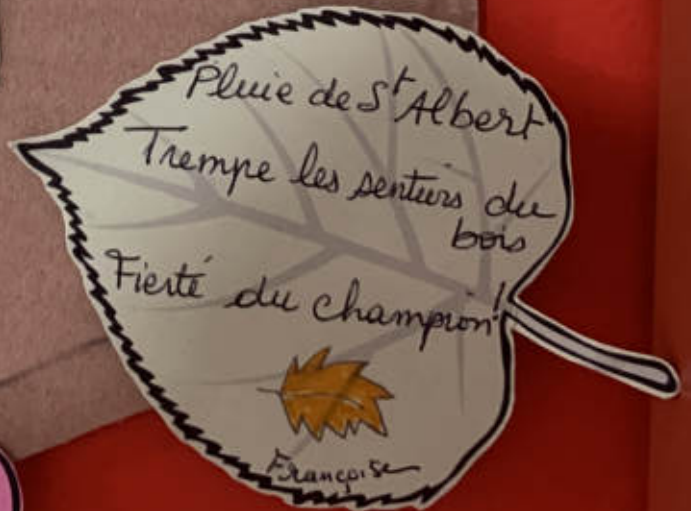 Pluie de St Albert
Trempe les sentiers du
bois
Fierté du champion !
Françoise